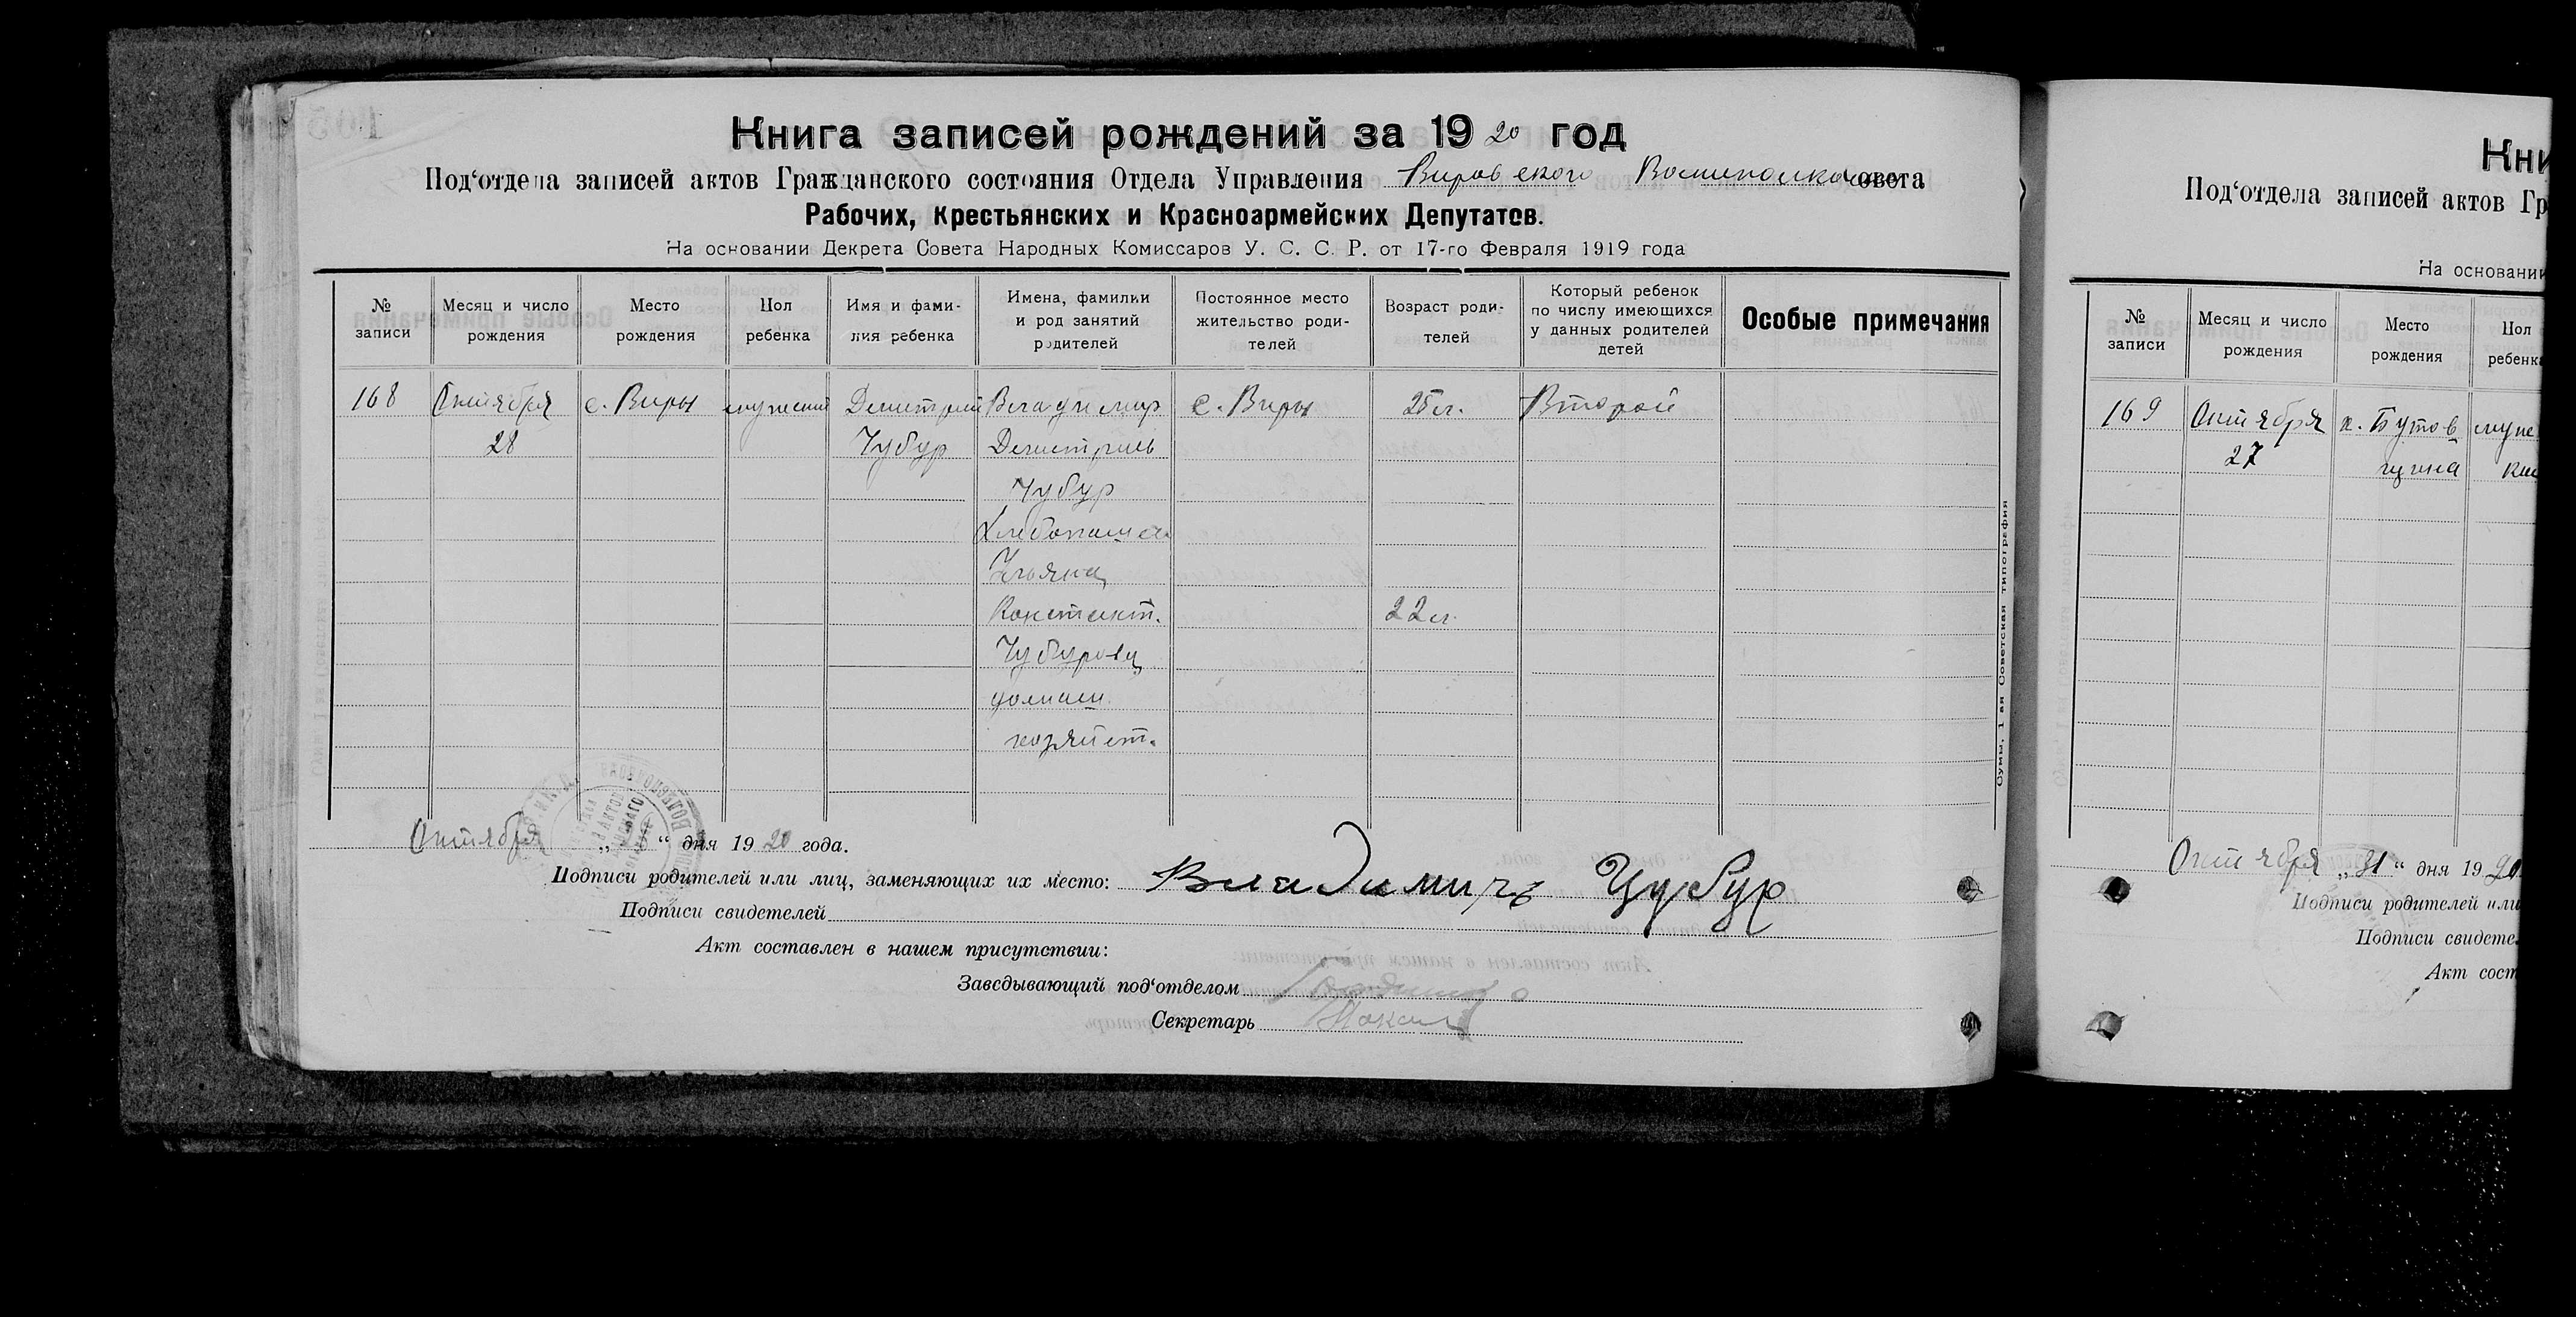 Книга записей рождений за 1920 год
Под‘отдела записей актов Гражданского состояния Отдела Управления Вировского Волисполкома совета
Рабочих, Крестьянских и Красноармейских Депутатов.
На основании Декрета Совета Народных Комиссаров У. С. С. Р. от 17-го Февраля 1919 года
№ записи
Месяц и число рождения
Место рождения
Пол ребенка
Имя и фами-
лия ребенка
Имена, фамилии
и род занятий
родителей
Постоянное место
жительство роди-
телей
Возраст роди-
телей
Который ребенок
по числу имеющихся
у данных родителей
детей
Особые примечания
168 Октября с. Виры мужский Дмитрий Владимир с. Виры 25 л. Второй
28 Чубур Дмитриев
Чубур
Хлебопашец
Ульяна
Констант. 22 л.
Чубурова
домаш.
хозяйст.
Сумы, 1-ая Советская типография
Октября „ “ дня 1920 года.
Подписи родителей или лиц, заменяющих их место: Владимиръ Чубур
Подписи свидетелей
Акт составлен в нашем присутствии:
Заведывающий под‘отделом
Секретарь
Кни
Под‘отдела записей актов Гр
На основании
№ записи
Месяц и число рождения
Место рождения
Пол ребенк
169 Октября х. Бутов муже
27 щина
Октября „31“ дня 1920
Подписи родителей или
Подписи свидете
Акт сост